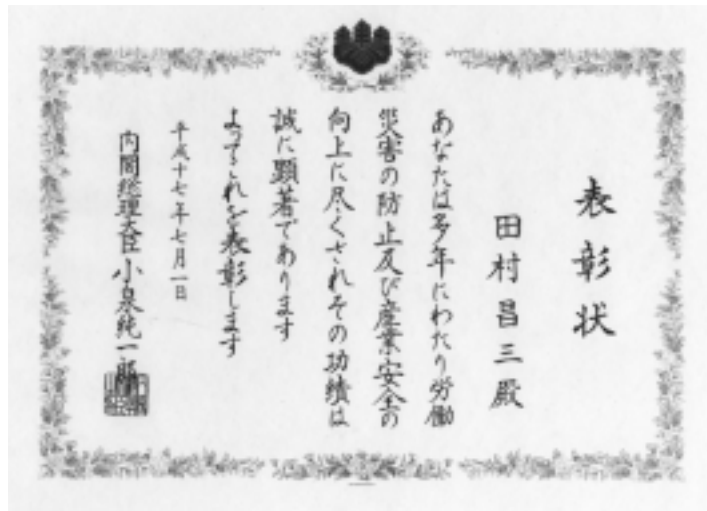 表彰状
田村昌三殿
あなたは多年にわたり労働
災害の防止及び産業安全の
向上に尽くされその功績は
誠に顕著であります
よってこれを表彰します
平成十七年七月一日
内閣総理大臣 小泉純一郎